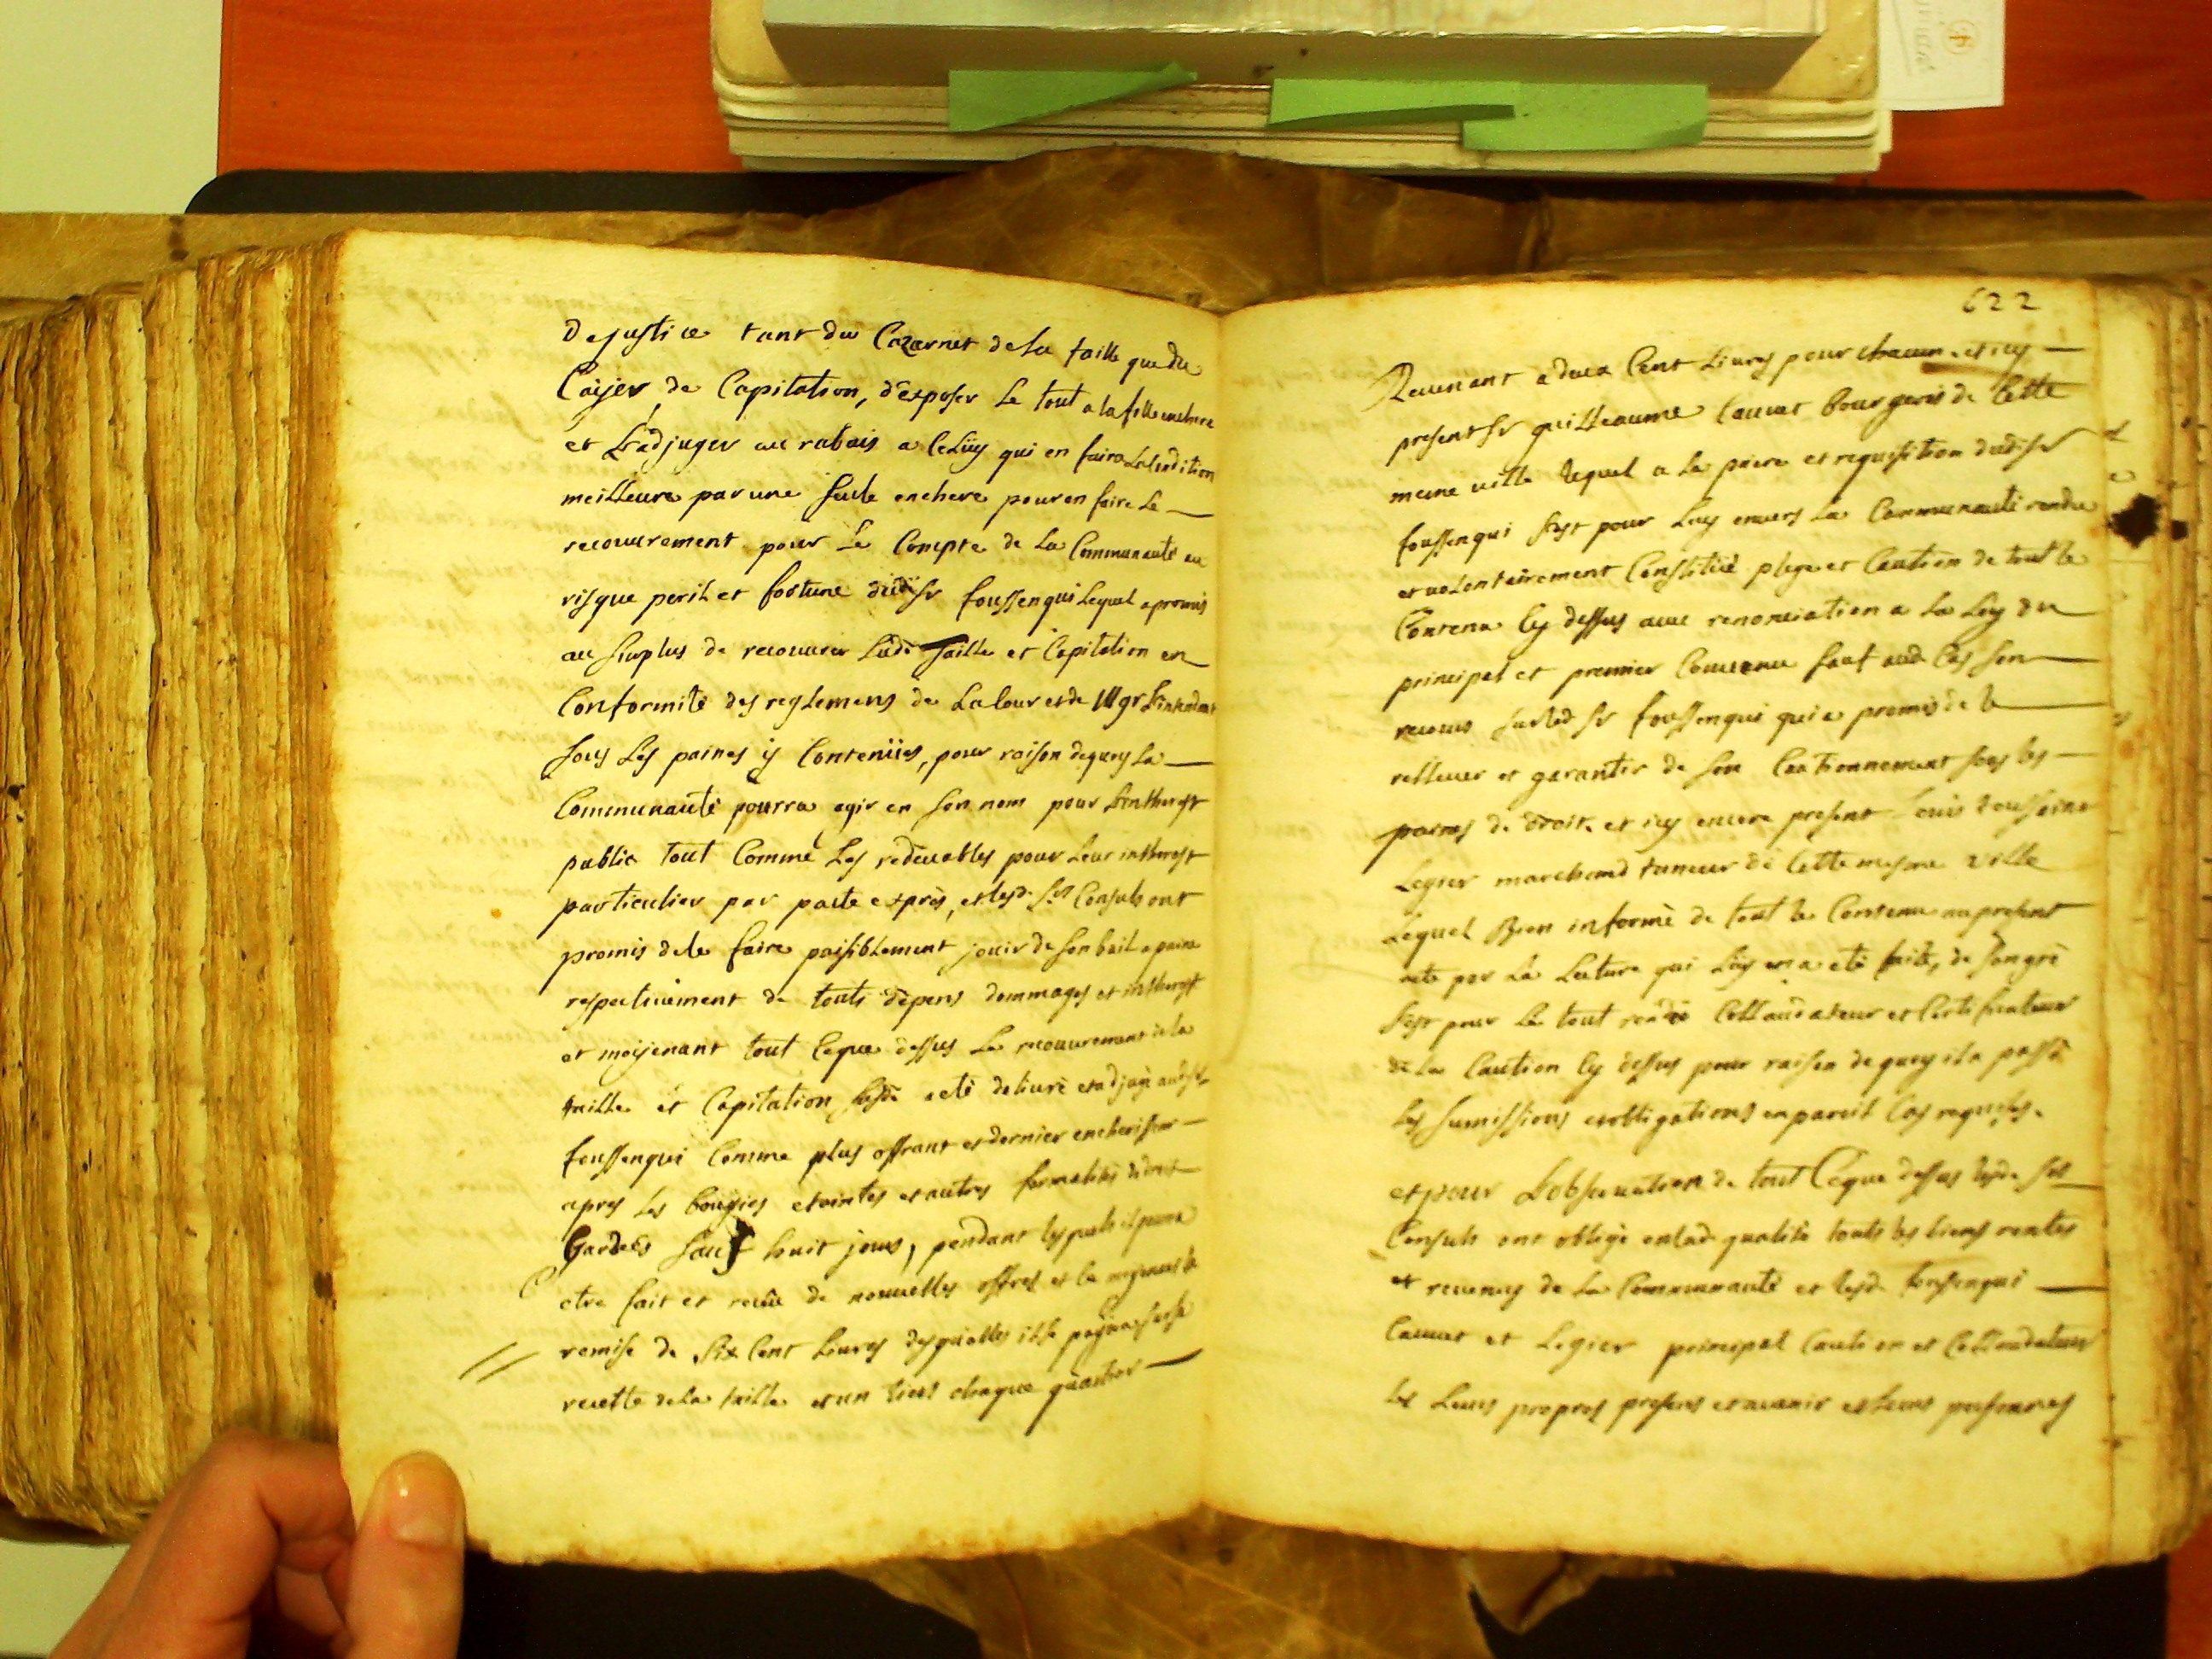 de justice tant du Cazarnet de la taille que du
Caÿer de Capitation, d'exposer le tout a la folle enchere
et L'adjuger au rabais a Celuy qui en faira La Condition
meilleure par une seule enchere pour en faire Le
recouurement pour Le Compte de La Communauté au
risque peril et fortune dudit Sr foussenqui Lequel a promis
au surplus de recouurer Lade taille et Capitation en
Conformité des reglemens de La Cour et de Mgr L'intendant
sous Les paines ÿ Contenües, pour raison dequoy La
Communauté pourra agir en son nom pour L'intherest
public tout Comme Les redeuables pour Leur intherest
particulier par pacte exprès, et lesd. Srs Consuls ont
promis de le faire paisiblement jouir de son bail a paine
respectiuement de touts dèpens dommages et intherest
et moÿenant tout Ceque dessus Le recouurement de la
taille et Capitation susde a eté deliuré et adjugé audit Sr
foussenqui Comme plus offrant et dernier encherisseur
apres Les bougies etaintes et autres formalités de droit
Gardeés sauf huit jours, pendant lesquels il poura
etre fait et recüe de nouuelles offres et la moyenant la
remise de six Cent Liures desquelles il se payera sur sa
recette de La taille et un tiers chaque quartier
622
Reuenant a deux Cent Liures pour chacun. et icy
present Sr guilleaume Cauuet bourgeois de Cette
meme uille Lequel a La priere et requisition dudit Sr
foussenqui s'est pour Luy enuers La Communauté rendu
et uolontairement Constitué plege et Caution de tout le
Contenu Cy dessus auec renonciation a La Loy du
principal et premier Conuenu sauf aud. Cas son
recours sur led Sr foussenqui qui a promis de le
releuer et garantir de son Cautionnement sous les
paines de droit. et icy encore present Louis toussaint
Legier marchand tanneur de Cette mesme Ville
Lequel Bien informé de tout le Contenu au present
acte par La Lecture qui Luy en a eté faite, de son gré
s'est pour Le tout rendu Collaudateur et Certificateur
de La Caution Cy dessus pour raison de quoy il a passé
Les sumissions et obligations en pareil Cas requises.
et pour L'obseruation de tout Ceque dessus lesde Srs
Consuls ont obligé en lad qualité touts les biens rentes
et reuenus de La Communauté et lesd. foussenqui
Cauuet et Legier principal Caution et Collaudateur
Les Leurs propres presens et auenir et Leurs personnes